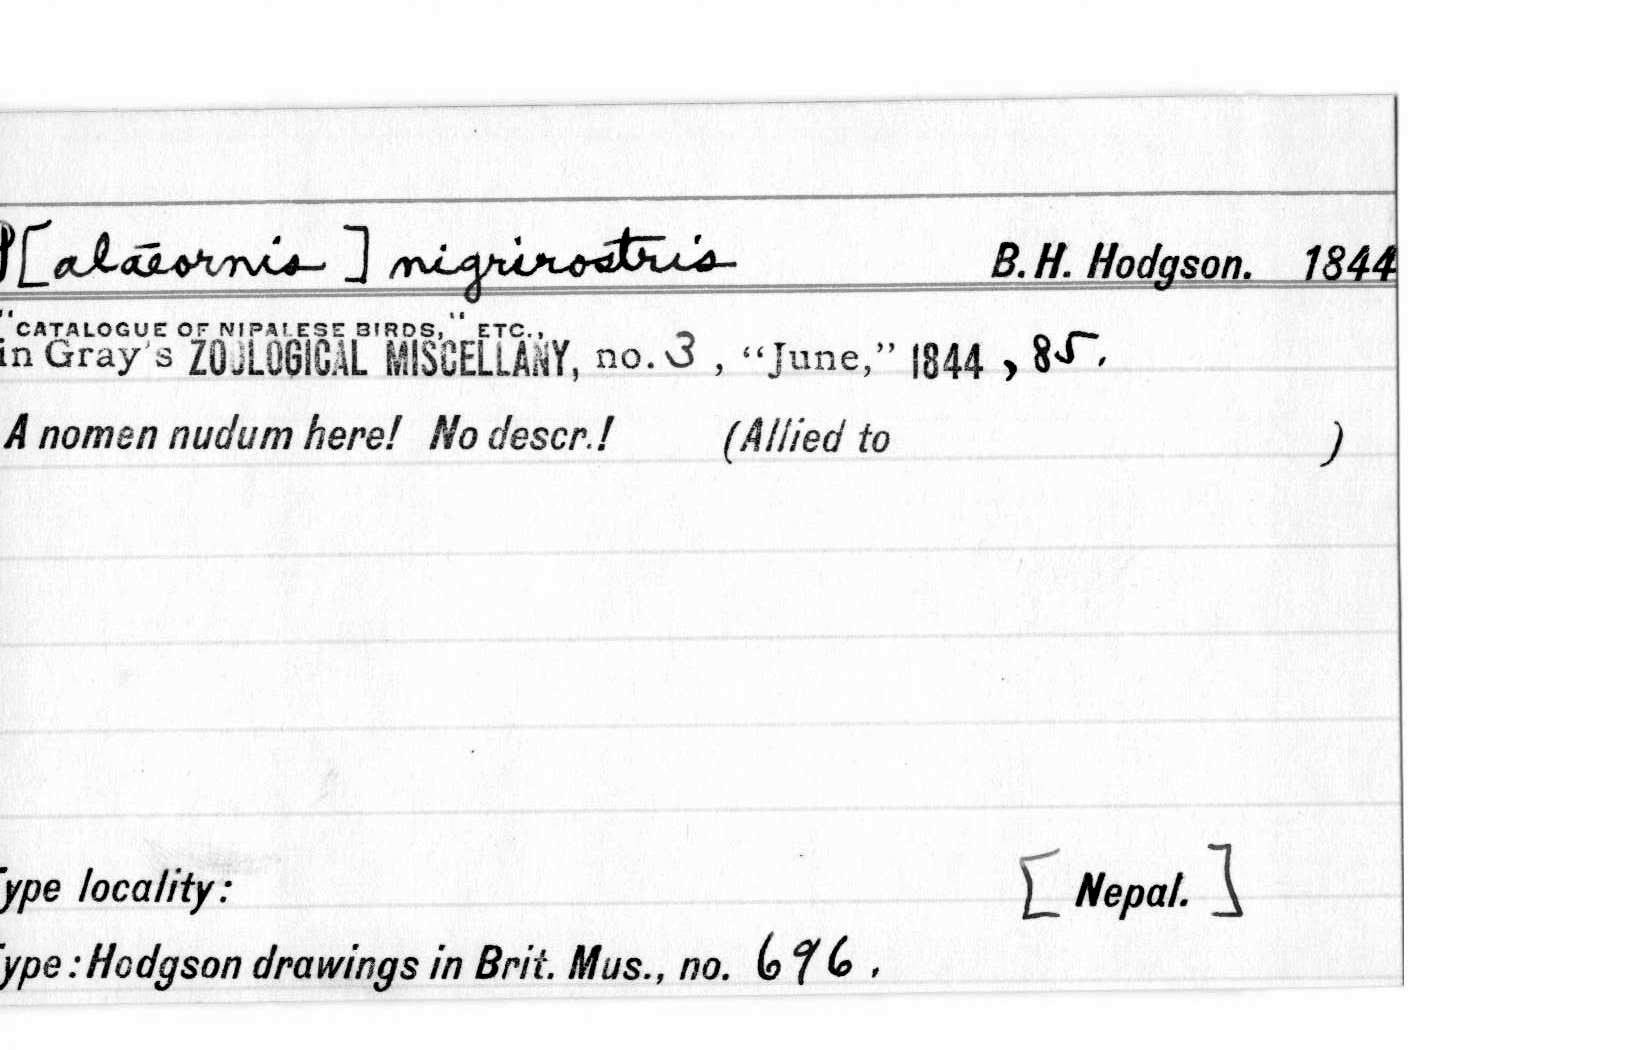 P[alaeornis] nigrirostris B. H. Hodgson. 1844
"CATALOGUE OF NIPALESE BIRDS," ETC.,
in Gray's ZOOLOGICAL MISCELLANY, no. 3, "June," 1844, 85.
A nomen nudum here! No descr.! (Allied to )
Type locality: [Nepal.]
Type: Hodgson drawings in Brit. Mus., no. 696.